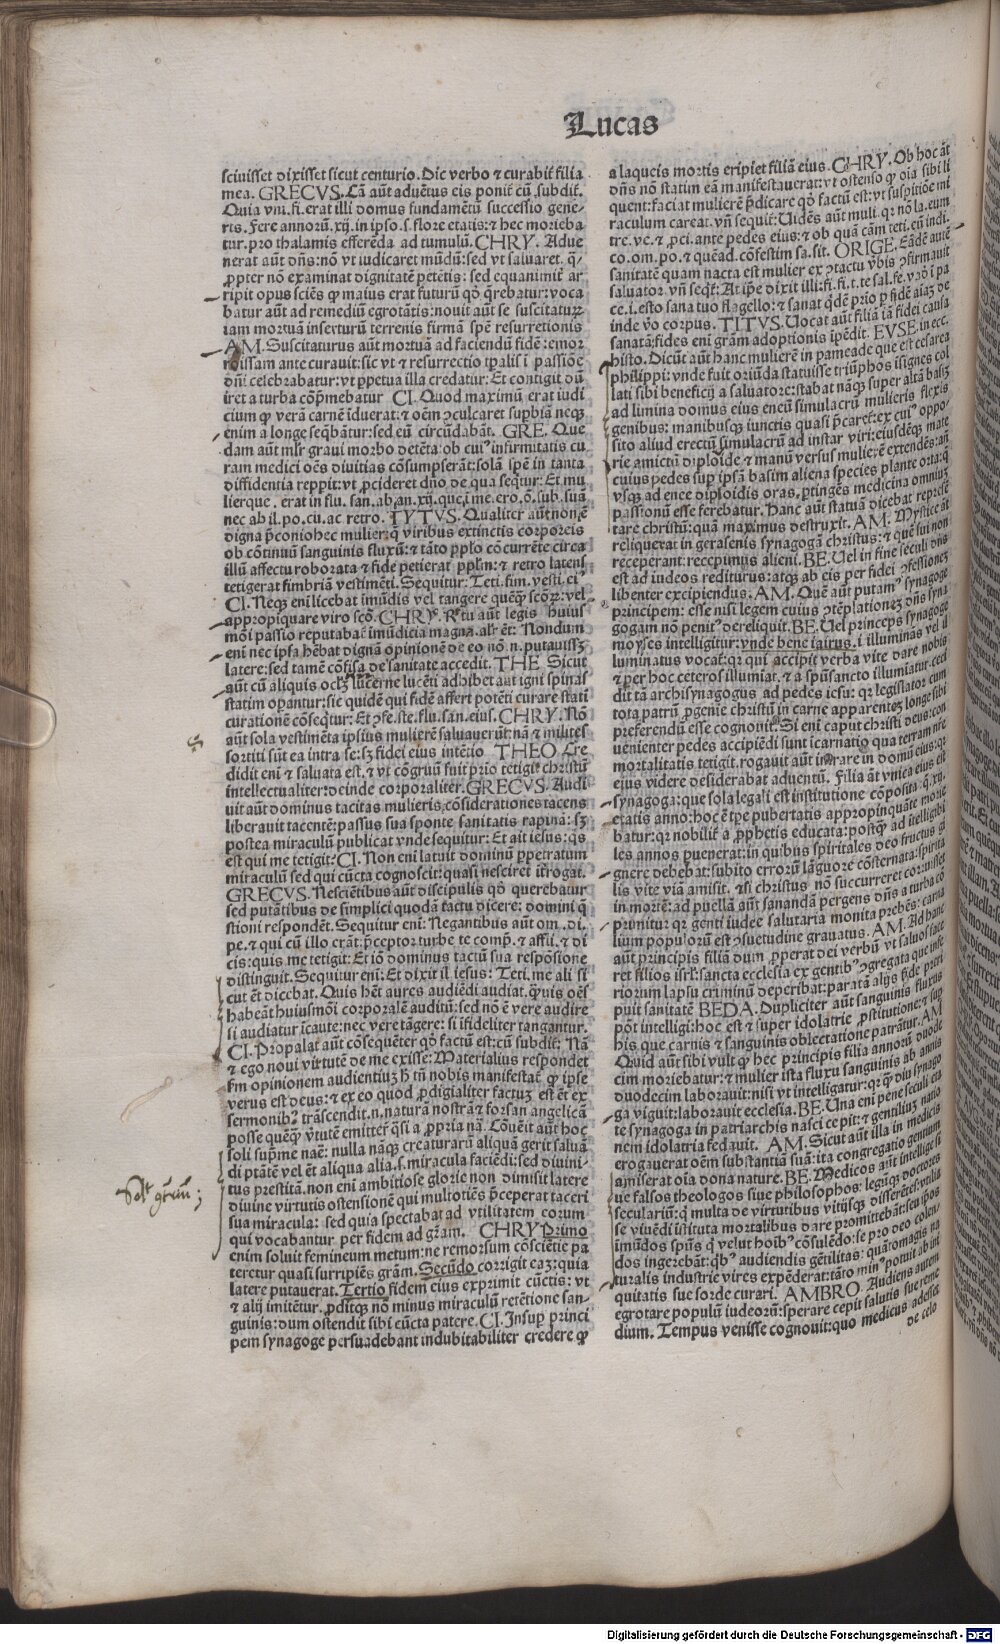 Lucas
sciuisset dixisset sicut centurio. Dic verbo ⁊ curabit̄ filia
mea. GRECVS. Cā aūt aduētus eis ponit̄ cū subdit̄.
Quia vni. fi. erat illi domus fundamētū successio gene-
ris. Fere annorū. xij. in ipso. s. flore etatis: ⁊ hec morieba
tur. pro thalamis efferēda ad tumulū. CHRY. Adue
nerat aūt dn̄s: nō vt iudicaret mūdū: sed vt saluaret. q̄-
ꝓpter nō examinat dignitatē petētis: sed equanimit̄ ar
ripit opus sciēs ꝙ maius erat futurū qd̄ q̄rebatur: voca
batur aūt ad remediū egrotātis: nouit aūt se suscitaturꝫ
iam mortuā inserturū terrenis firmā spē resurretionis
AM. Suscitaturus aūt mortuā ad faciendū fidē: emor
roissam ante curauit: sic vt ⁊ resurrectio tp̄alis ī passiōe
dn̄i celebrabatur: vt ꝑpetua illa credatur: Et contigit dū
iret a turba cōpͥmebatur CI. Quod maximū erat iudi
cium ꝙ verā carnē īduerat: ⁊ oēm ꝯculcaret supbiā neqꝫ
enim a longe seq̄bātur: sed eū circūdabāt. GRE. Que
dam aūt mlͬr graui morbo detēta: ob cuiꝰ infirmitatis cu
ram medici oēs diuitias cōsumpserāt: solā spē in tanta
diffidentia repꝑit: vt ꝓcideret dn̄o de qua seqͥtur: Et mu
lierque. erat in flu. san. ab. an. xij. que ī me. ero. ō. sub. suā
nec ab il. po. cu. ac. retro. TYTVS. Qualiter aūt non ē
digna p̄coniohec mulier: q̄ viribus extinctis corporeis
ob cōtinuū sanguinis fluxū: ⁊ tāto pp̄lo cōcurrēte circa
illū affectu roborata ⁊ fide petierat pp̄lm: ⁊ retro latens
tetigerat fimbriā vestimēti. Sequitur: Teti. fim. vesti. eiꝰ
CI. Neqꝫ eni licebat īmūdis vel tangere quēqꝫ scōꝝ: vel
appropiquare viro scō. CHRY. Rͥtu aūt legis huius
mōi passio reputabat̄ īmūdicia magna. alr̄ ēt: Nondum
eni nec ipsa hēbat dignā opinionē de eo nō. n. putauissꝫ
latere: sed tamē cōfisa de sanitate accedit. THE. Sicut
aūt cū aliquis oclꝫ lucerne lucēti adhibet aut igni spinas
statim opantur: sic quidē qui fidē affert potēti curare stati
curationē cōseqͥtur: Et ꝯfe. ste. flu. san. eius. CHRY. Nō
aūt sola vestimēta ipsius mulierē saluauerūt: nā ⁊ milites
sortiti sūt ea intra se: sꝫ fidei eius intētio THEO Cre
didit eni ⁊ saluata est. ⁊ vt cōgruū fuit priō tetigit christū
intellectualiter: deinde corporaliter. GRECVS. Audi
uit aūt dominus tacitas mulieris cōsiderationes tacens
liberauit tacentē: passus sua sponte sanitatis rapinā: sꝫ
postea miraculū publicat vnde sequitur: Et ait iesus: qs
est qui me tetigit: CI. Non eni latuit dominū ꝑpetratum
miraculū sed qui cūcta cognoscit: quasi nesciret īterogat.
GRECVS. Nesciētibus aūt discipulis qd̄ querebatur
sed putātibus de simplici quodā tactu dicere: domini q̄
stioni respondēt. Sequitur eni: Negantibus aūt om. di.
pe. ⁊ qui cū illo erāt: p̄ceptor turbe te comp̄. ⁊ affli. ⁊ di
cis: quis me tetigit: Et iō dominus tactū sua respōsione
distinguit. Sequitur eni: Et dixit il. iesus: Teti. me ali. si
cut ēt dicebat. Quis hēt aures audiēdi audiat. qͣuis oēs
habeāt huiusmōi corporalē auditū: sed nō ē vere audire
si audiatur īcaute: nec vere tāgere: si īfideliter tangantur.
CI. Propalat aūt cōsequēter qd̄ factū est: cū subdit: Nā
⁊ ego noui virtutē de me exisse: Materialius respondet
ẜm opinionem audientiuꝫ ħ tn̄ nobis manifestat̄ ꝙ ipse
verus est deus: ⁊ ex eo quod ꝓdigialiter factuꝫ est ēt ex
sermonibꝰ trāscendit. n. naturā nostrā ⁊ forsan angelicā
posse quēqꝫ v̄tutē emitter̄ q̄si a ꝓpria nā. Cōueīt aūt hoc
soli sup̄me nāe: nulla nāqꝫ creaturarū aliquā gerit saluā
di ptātē vel ēt aliqua alia. s. miracula faciēdi: sed diuini-
tus prestitā. non eni ambitiose glorie non dimisit latere
diuine virtutis ostensionē qui multotiēs p̄ceperat taceri
sua miracula: sed quia spectabat ad vtilitatem eorum
qui vocabantur per fidem ad gr̄am. CHRY Primo
enim soluit femineum metum: ne remorsum cōsciētie pa
teretur quasi surripiēs grām. Secūdo corrigit eaꝫ: quia
latere putauerat. Tertio fidem eius exprimit cūctis: vt
⁊ alij imitētur. ꝓditqꝫ nō minus miraculū retētione san-
guinis: dum ostendit sibi cūcta patere. CI. Insup princi
pem synagoge persuadebant indubitabiliter credere ꝙ
a laqueis mortis eripiet filiā eius. CHRY. Ob hoc āt
dn̄s nō statim eā manifestauerat: vt ostenso ꝙ oīa sibi li
quent: faciat mulierē p̄dicare qd̄ factū est: vt suspitiōe mi
raculum careat. vn̄ sequit̄: Uidēs aūt muli. qr nō la. eum
tre. ve. ⁊ ꝓci. ante pedes eius: ⁊ ob quā cām teti. eū indi.
co. om. po. ⁊ queād. cōfestim sa. sit. ORIGE. Eādē autē
sanitatē quam nacta est mulier ex ꝯtactu v̄bis ꝯfirmauit
saluator. vn̄ seqͥt̄: At ip̄e dixit illi: fi. fi. t. te sal. fe. vad̄ ī pa
ce. i. esto sana tuo flagello: ⁊ sanat qͥdē prio ꝑ fidē aiaꝫ de
inde v̄o corpus. TITVS. Uocat aūt filiā iā fidei causa
sanatā: fides eni grām adoptionis īpēdit. EVSE. in ecc.
histo. Dicūt aūt hanc mulierē in pameade que est cesarea
philippi: vnde fuit oriūda statuisse triūphos īsignes col
lati sibi beneficij a saluatore: stabat nāqꝫ super altā basiꝫ
ad limina domus eius eneū simulacrū mulieris flexis
genibus: manibusqꝫ iunctis quasi p̄caret̄: ex cuiꝰ oppo-
sito aliud erectū simulacrū ad instar viri: eiusdēqꝫ mate
rie amictū diploide ⁊ manū versus mulierē extendēs: aūt
cuius pedes sup ipsā basim aliena species plante orta: q̄
vsqꝫ ad ence diploidis oras ptingēs medicina omniuꝫ
passionū esse ferebatur. Hanc aūt statuā dicebat represē
tare christū: quā maximus destruxit. AM. Mystice āt
reliquerat in gerasenis synagogā christus: ⁊ quē sui non
receperant: recepimus alieni. BE. Uel in fine seculi dn̄s
est ad iudeos rediturus: atqꝫ ab eis per fidei ꝯfessionez
libenter excipiendus. AM. Quē aūt putamꝰ synagoge
principem: esse nisi legem cuius ꝯtēplationeꝫ dn̄s syna
gogam nō penitꝰ dereliquit. BE. Uel princeps synagoge
moyses intelligitur: vnde bene iairus. i. illuminās vel il
luminatus vocat̄: qr qui accipit verba vite dare nobis
⁊ per hoc ceteros illumiat. ⁊ a spūsancto illumiatur. ceci
dit tā archisynagogus ad pedes iesu: qr legislator cum
tota patrū ꝓgenie christū in carne apparenteꝫ longe sibi
preferendū esse cognouit. Si eni caput christi deus: con
uenienter pedes accipiēdi sunt īcarnatio qua terram nr̄e
mortalitatis tetigit. rogauit aūt intrare in domū eius: qr
eius videre desiderabat aduentū. Filia āt vnica eius est
synagoga: que sola legali est institutione cōposita. q̄. xij.
etatis anno: hoc ē t̄pe pubertatis appropinquāte morie
batur: qr nobilit̄ a ꝓphetis educata: postqꝫ ad ītelligibi
les annos puenerat: in quibus spirituales deo fructus gi
gnere debebat: subito errorū lāguore cōsternata: spirita
lis vite viā amisit. ⁊ si christus nō succurreret corruisset
in mortē: ad puellā aūt sanandā pergens dn̄s a turba cō
primitur qr genti iudee salutaria monita prebēs: carna
lium populorū est ꝯsuetudine grauatus. AM. Ad hanc
aūt principis filiā dum ꝓperat dei verbū vt saluos face
ret filios isrl̄: sancta ecclesia ex gentibꝰ ꝯgregata que infe
riorum lapsu criminū deperibat: paratā alijs fide preri
puit sanitatē BEDA. Dupliciter aūt sanguinis fluxus
pōt intelligi: hoc est ⁊ super idolatrie ꝓstitutione: ⁊ sup
his que carnis ⁊ sanguinis oblectatione patrātur. AM
Quid aūt sibi vult ꝙ hec principis filia annorū duode
cim moriebatur: ⁊ mulier ista fluxu sanguinis ab annis
duodecim laborauit: nisi vt intelligatur: qr qͣdiu synago
ga viguit: laborauit ecclesia. BE. Una eni pene seculi eta
te synagoga in patriarchis nasci cepit: ⁊ gentiliuꝫ natio
nem idolatria fedauit. AM. Sicut aūt illa in medicis
erogauerat oēm substantiā suā: ita congregatio gentium
amiserat oīa dona nature. BE. Medicos aūt intellige si
ue falsos theologos siue philosophos: legūqꝫ doctores
seculariū: q̄ multa de virtutibus vitijsqꝫ disserētes: vtilia
se viuēdi īstituta mortalibus dare promittebāt: seu ipsos
īmūdos spūs q̄ velut hoībꝰ cōsulēdo: se pro deo colen-
dos ingerebāt: qͥbꝰ audiendis gētilitas: quātomagis na
turalis industrie vires expēderat: tāto minꝰ potuit ab ini
quitatis sue sorde curari. AMBRO. Audiens autem
egrotare populū iudeorū: sperare cepit salutis sue reme
dium. Tempus venisse cognouit: quo medicus adesset
de celo
Digitalisierung gefördert durch die Deutsche Forschungsgemeinschaft - DFG